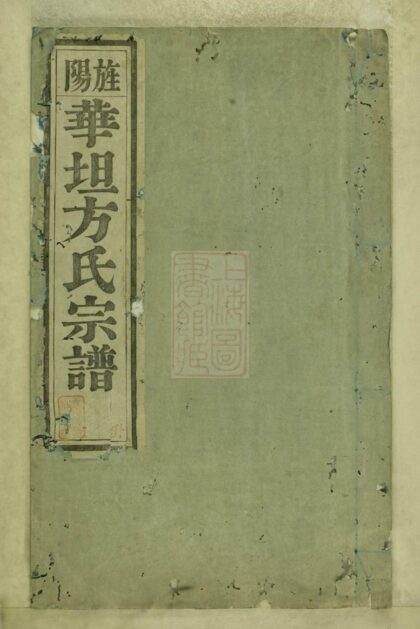 旌陽
華坦方氏宗譜
上海圖
書館藏